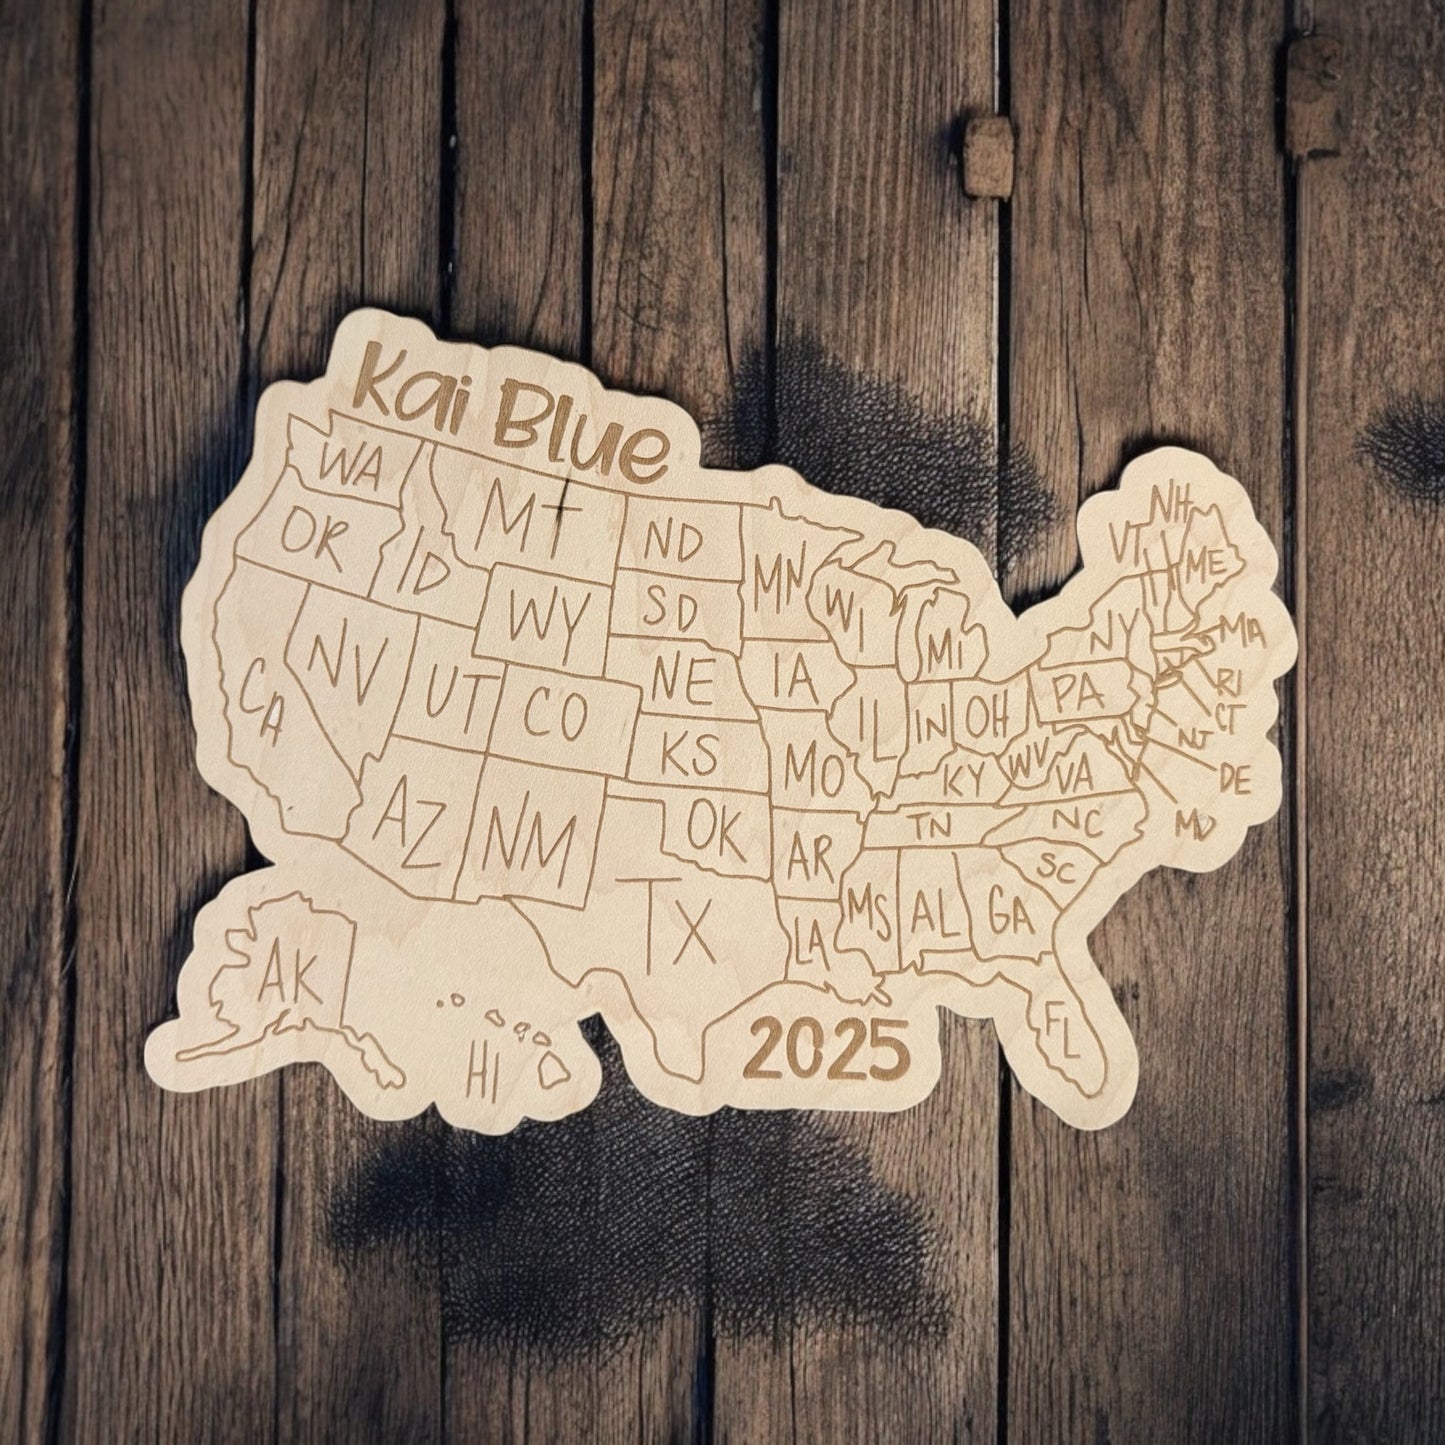 Kai Blue
WA
MT
ND
MN
OR
ID
WY
SD
WI
MI
VT
NH
ME
NY
MA
CA
NV
UT
CO
NE
IA
IL
IN
OH
PA
RI
CT
NJ
KS
MO
KY
WV
VA
DE
MD
AZ
NM
OK
AR
TN
NC
SC
TX
LA
MS
AL
GA
FL
AK
HI
2025